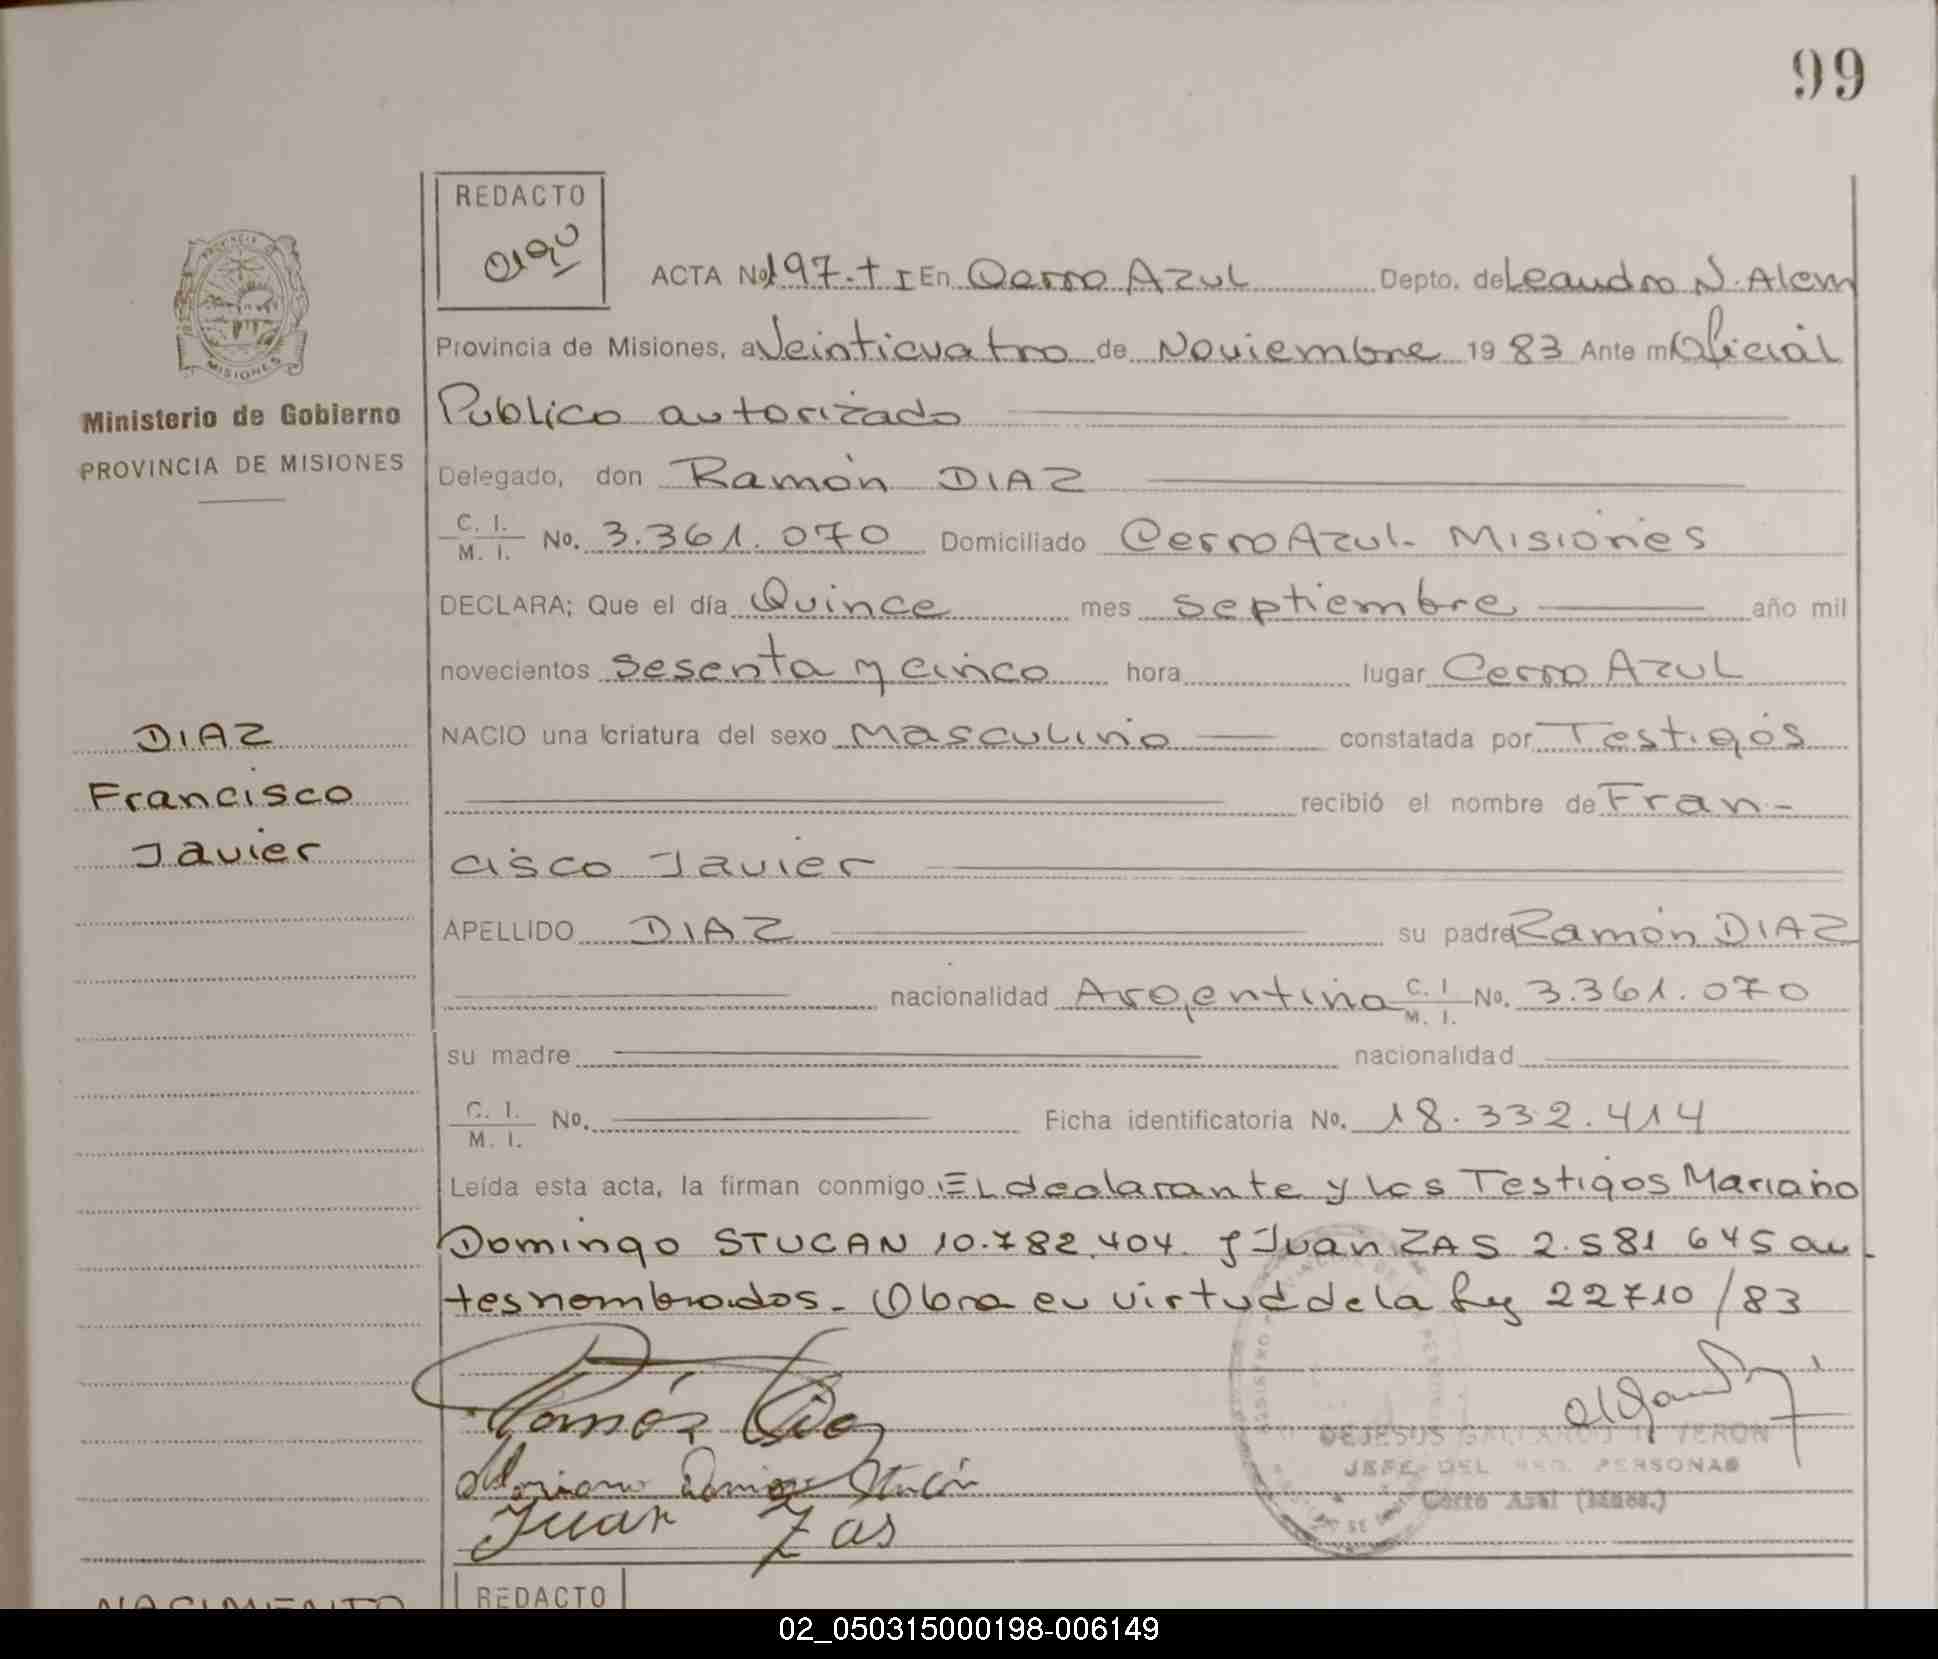 99
REDACTO
ACTA No 197-t I En Cerro Azul Depto. de Leandro N. Alem
Provincia de Misiones, a Veinticuatro de Noviembre 19 83 Ante mi Oficial
Publico autorizado
Ministerio de Gobierno
PROVINCIA DE MISIONES
Delegado, don Ramón DIAZ
C. I. / M. I. No. 3.361.070 Domiciliado Cerro Azul - Misiones
DECLARA; Que el día Quince mes septiembre año mil
novecientos sesenta y cinco hora lugar Cerro Azul
DIAZ
Francisco
Javier
NACIO una criatura del sexo Masculino constatada por Testigos
recibió el nombre de Fran-
cisco Javier
APELLIDO DIAZ su padre Ramón DIAZ
nacionalidad Argentina C. I. / M. I. No. 3.361.070
su madre nacionalidad
C. I. / M. I. No. Ficha identificatoria No. 18.332.414
Leída esta acta, la firman conmigo El declarante y los Testigos Mariano
Domingo STUCAN 10.782.404 y Juan ZAS 2.581 645 an
tesnombrados. Obra en virtud de la Ley 22710/83
Ramón Diaz
Mariano Domingo Stucan
Juan Zas
DEJESUS GALLARDO D. VERON
JEFE DEL REG. PERSONAS
Cerro Azul (Mnes.)
NACIMIENTO
REDACTO
02_050315000198-006149